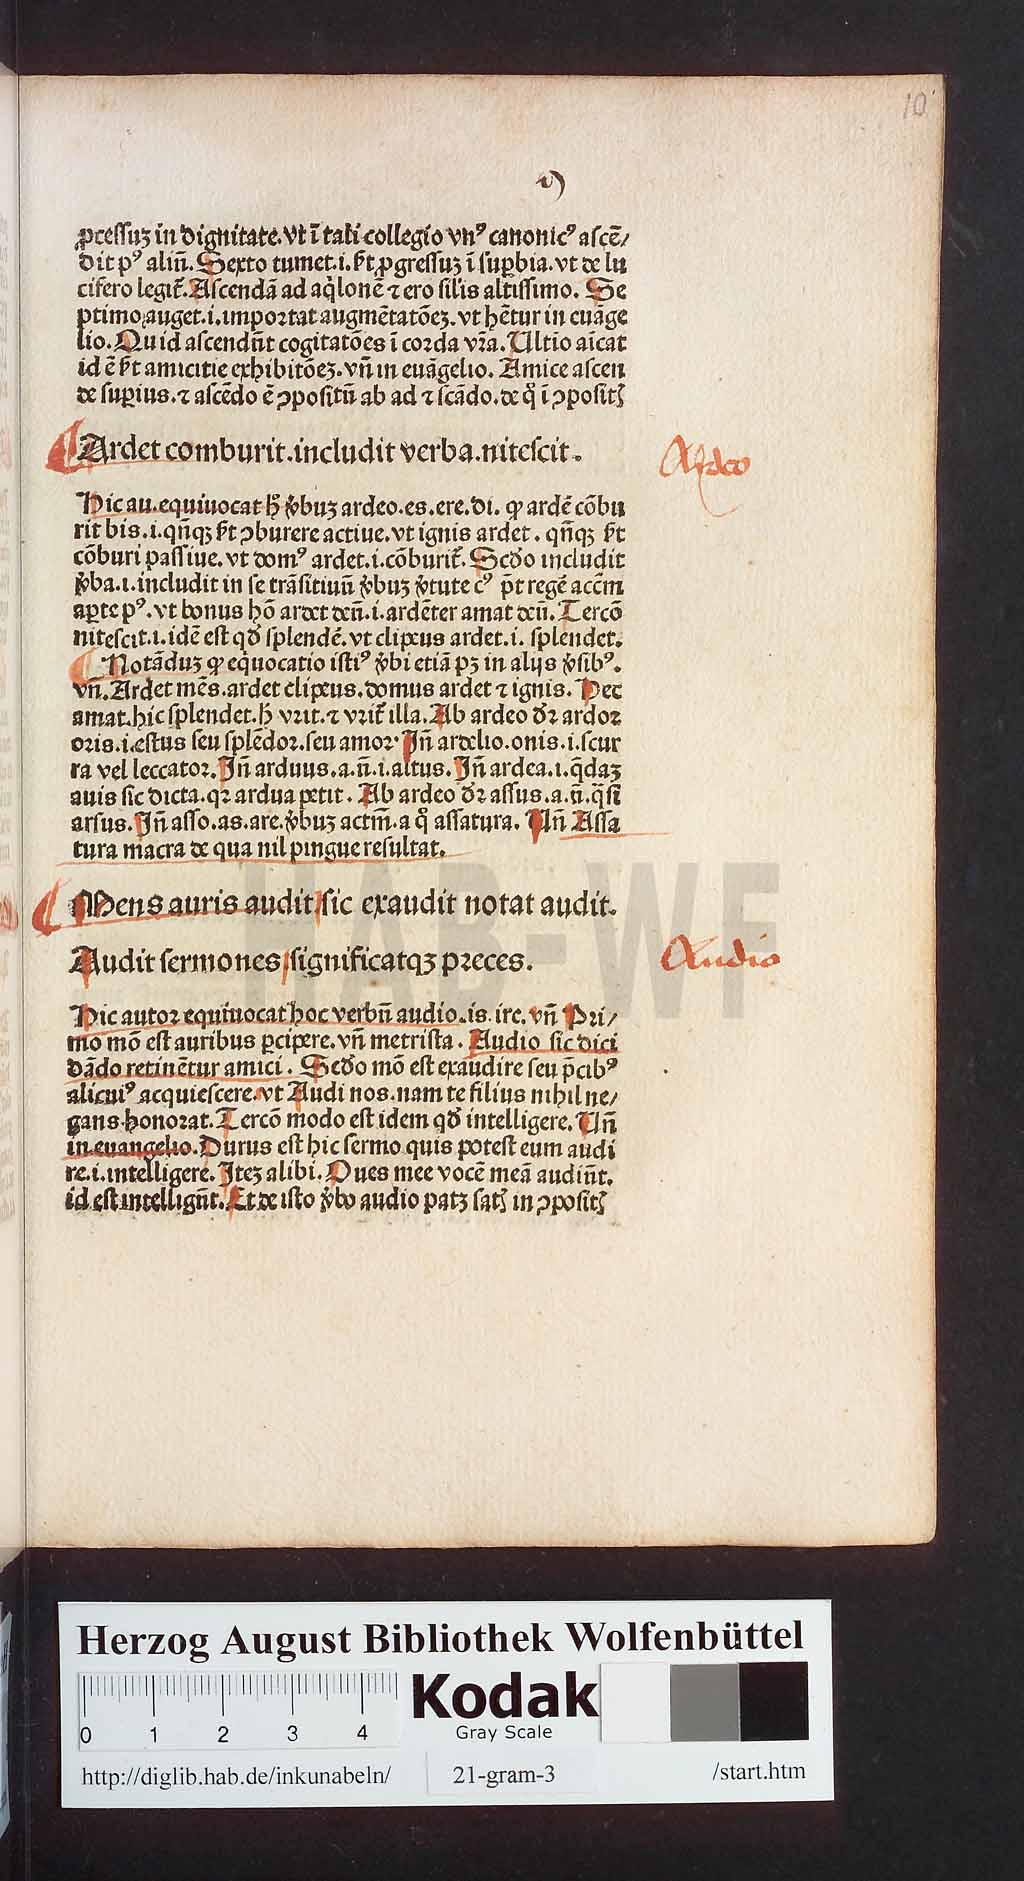 10
ꝓcessuꝫ in dignitate. vt ī tali collegio vnꝰ canonicꝰ ascē/
dit pꝰ aliū. Sexto tumet. i. ꝓgressuꝫ ī suꝑbia. vt de lu
cifero legit̄. Ascendā ad aq̇lonē ⁊ ero silis altissimo. Se
ptimo auget. i. importat augmētatōeꝫ. vt hētur in euāge
lio. Quid ascendūt cogitatōes ī corda vr̄a. Ultīo aīcat
id ē amicitie exhibitōeꝫ. vn̄ in euāgelio. Amice ascen
de suꝑius. ⁊ ascēdo ē ꝯpositū ab ad ⁊ scādo. de ī ꝯpositꝭ
Ardet comburit. includit verba. nitescit.
Ardeo
Hic au. equiuocat ꝟbuꝫ ardeo. es. ere. di. ꝙ ardē cōbu
rit bis. i. qn̄qꝫ ꝯburere actiue. vt ignis ardet. qn̄qꝫ
cōburi passiue. vt domꝰ ardet. i. cōburit̄. Scd̓o includit
ꝟba. i. includit in se trāsitiuū ꝟbuꝫ ꝟtute cꝰ p̄t regē accm̄
aꝑte pꝰ. vt bonus hō ardet deū. i. ardēter amat deū. Tercō
nitescit. i. idē est qd̓ splendē. vt clipeus ardet. i. splendet.
Notāduꝫ ꝙ eq̇uocatio istiꝰ ꝟbi etiā pꝫ in alijs ꝟsibꝰ.
vn̄. Ardet mēs. ardet clipeus. domus ardet ⁊ ignis. Hec
amat. hic splendet. vrit. ⁊ vrit̄ illa. Ab ardeo dr̄ ardor
oris. i. estus seu splēdor. seu amor. In̄ ardelio. onis. i. scur
ra vel leccator. In̄ arduus. a. ū. i. altus. In̄ ardea. i. q̄daꝫ
auis sic dicta. qꝛ ardua petit. Ab ardeo dr̄ assus. a. ū. q̄si
arsus. In̄ asso. as. are. ꝟbuꝫ actm̄. a q̊ assatura. Un̄ Assa
tura macra de qua nil pingue resultat.
Mens auris audit sic exaudit notat audit.
Audit sermones significatqꝫ preces.
Audio
Hic autor equiuocat hoc verbū audio. is. ire. vn̄ Pri/
mo mō est auribus ꝑcipere. vn̄ metrista. Audio sic dici
dādo retinētur amici. Scd̓o mō est exaudire seu p̄cibꝰ
alicuiꝰ acquiescere. vt Audi nos. nam te filius nihil ne/
gans honorat. Tercō modo est idem qd̓ intelligere. Un̄
in euangelio. Durus est hic sermo quis potest eum audi
re. i. intelligere. Iteꝫ alibi. Oues mee vocē meā audiūt.
id est intelligūt. Et de isto ꝟbo audio patꝫ satꝭ in ꝯpositꝭ
HAB-WF
Herzog August Bibliothek Wolfenbüttel
0 1 2 3 4
Kodak
Gray Scale
http://diglib.hab.de/inkunabeln/ 21-gram-3 /start.htm